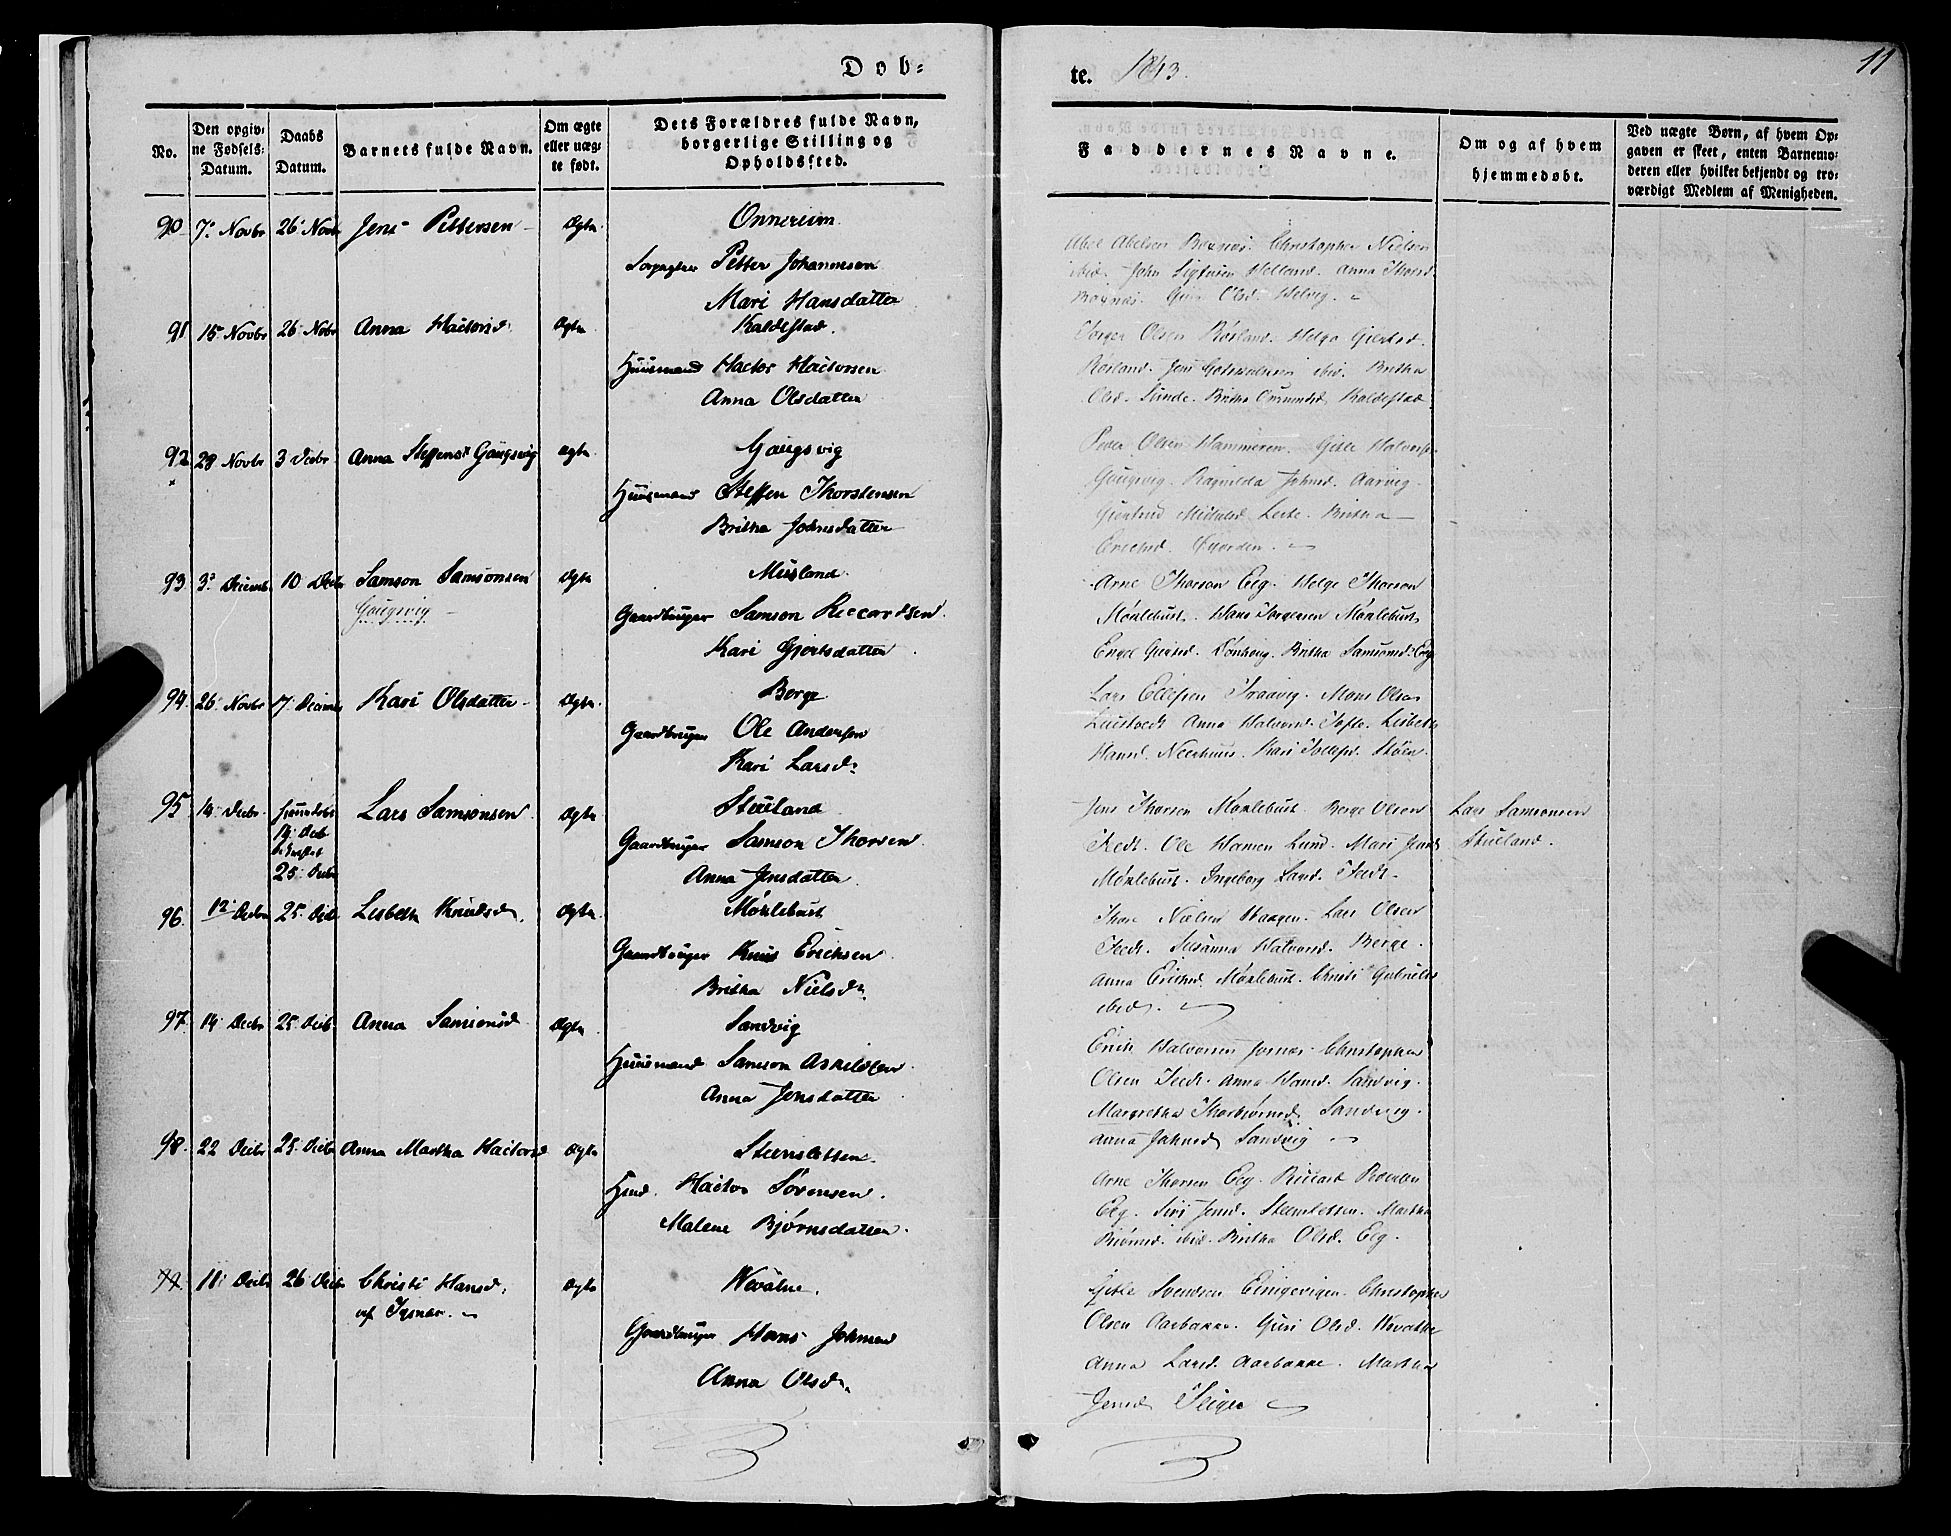 Dob-
te. 1843.
11
No.
Den opgiv-
ne Fødsels-
Datum.
Daabs
Datum.
Barnets fulde Navn.
Om ægte
eller uæg-
te født.
Dets Forældres fulde Navn,
borgerlige Stilling og
Opholdssted.
Faddernes Navne.
Om og af hvem
hjemmedøbt.
Ved uægte Børn, af hvem Op-
gaven er skeet, enten Barnemo-
deren eller hvilket bekjendt og tro-
værdigt Medlem af Menigheden.
90 7. Novbr 26 Novb Jens Pettersen Ægte Onnereim
Petter Johannesen
Mari Hansdatter
Abel Abelsen Christopher Nielsen
ibid. John Helland. Anna Thorsd.
Olsd. Helvig.
91 15 Novbr 26 Nobr Anna Hactorsd. Ægte Kaldestad.
Huusmand Hactor Hactorsen
Anna Olsdatter
Olsen Røsland. Helga Giertsd.
Røsland. Jens ibid. Britha
Olsd. Sunde. Britha Kaldestad.
92 28 Novbr 3 Decbr Anna Steffensd Gaugsvig Ægte Gaugsvig
Huusmand Steffen Thorstensen
Britha Johnsdatter
Peder Olsen Hammeren. Gitle Halvorsen
Gaugsvig. Ragnilda Johnsd. Aarvig.
Britha
93. 3. Decemb 10 Decbr Samson Samsonsen Ægte Musland.
Gaugsvig
Gaardbruger Samson Reccardsen.
Kari Gjertsdatter.
Arne Thorsen Eeg. Helge Thorson
Møxlebust. Hans Torgersen Møxlebust
Engel Giertsd. Britha Samsonsd. Eeg
94. 26. Novbr 17. Decemb Kari Olsdatter Ægte. Berge
Gaardbruger Ole Andersen
Kari Larsd.
Lars Ellefsen Traavig. Mons Olsen
Anna Halvorsd. Tofte. Lisbeth
Hansd. Neerhuus. Kari
95 14. Decbr. hjemdøbt Lars Samsonsen Ægte Stueland
14. Decb
25. Decbr
Gaardbruger Samson Thorsen
Anna Jensdatter
Jens Thorsen Møxlebust. Berge Olsen
Tvedt. Ole Hansen Lund. Mari Jensd
Møxlebust. Ingeborg Larsd. Tvedt.
Lars Samsonsen
Stueland.
96. 12. Decbr 25. Decb Lisbeth Knudsd. Ægte. Møxlebust
Gaardbruger Knud Erichsen
Britha Nielsd.
Thore Nielsen Haagen. Lars Olsen
Tvedt. Susanna Halvorsd. Berge.
Anna Erichsd. Møxlebust. Christi Gabriels
ibid.
97. 14. Decbr 25. Decb. Anna Samsonsd Ægte Sandvig
Huusmand Samson Askildsen.
Anna Jensdatter
Erich Halvorsen Christopher
Olsen Tvedt. Anna Hansd. Sandvig.
Margretha Thorbjørnsd. Sandvig.
Anna Johnsd Sandvig
98. 22 Decbr 25. Decbr Anna Martha Hactorsd Ægte Steensletten.
Hmd. Hactor Sørensen.
Malene Bjørnsdatter.
Arne Thorsen Eeg. Riccart Pedersen
Eeg. Siri Jensd. Steensletten. Martha
Biørnsd. ibid. Britha Olsd. Eeg.
99. 11. Decbr 26 Decb Christi Hansd. Ægte Wevatne.
af Tysnæs.
Gaardbruger Hans Johnsen
Anna Olsd.
Gitle Svendsen Christopher
Olsen Aarbakke. Guri Olsd. Wevatne
Anna Larsd. Aarbakke. Martha
Jensd Teigen